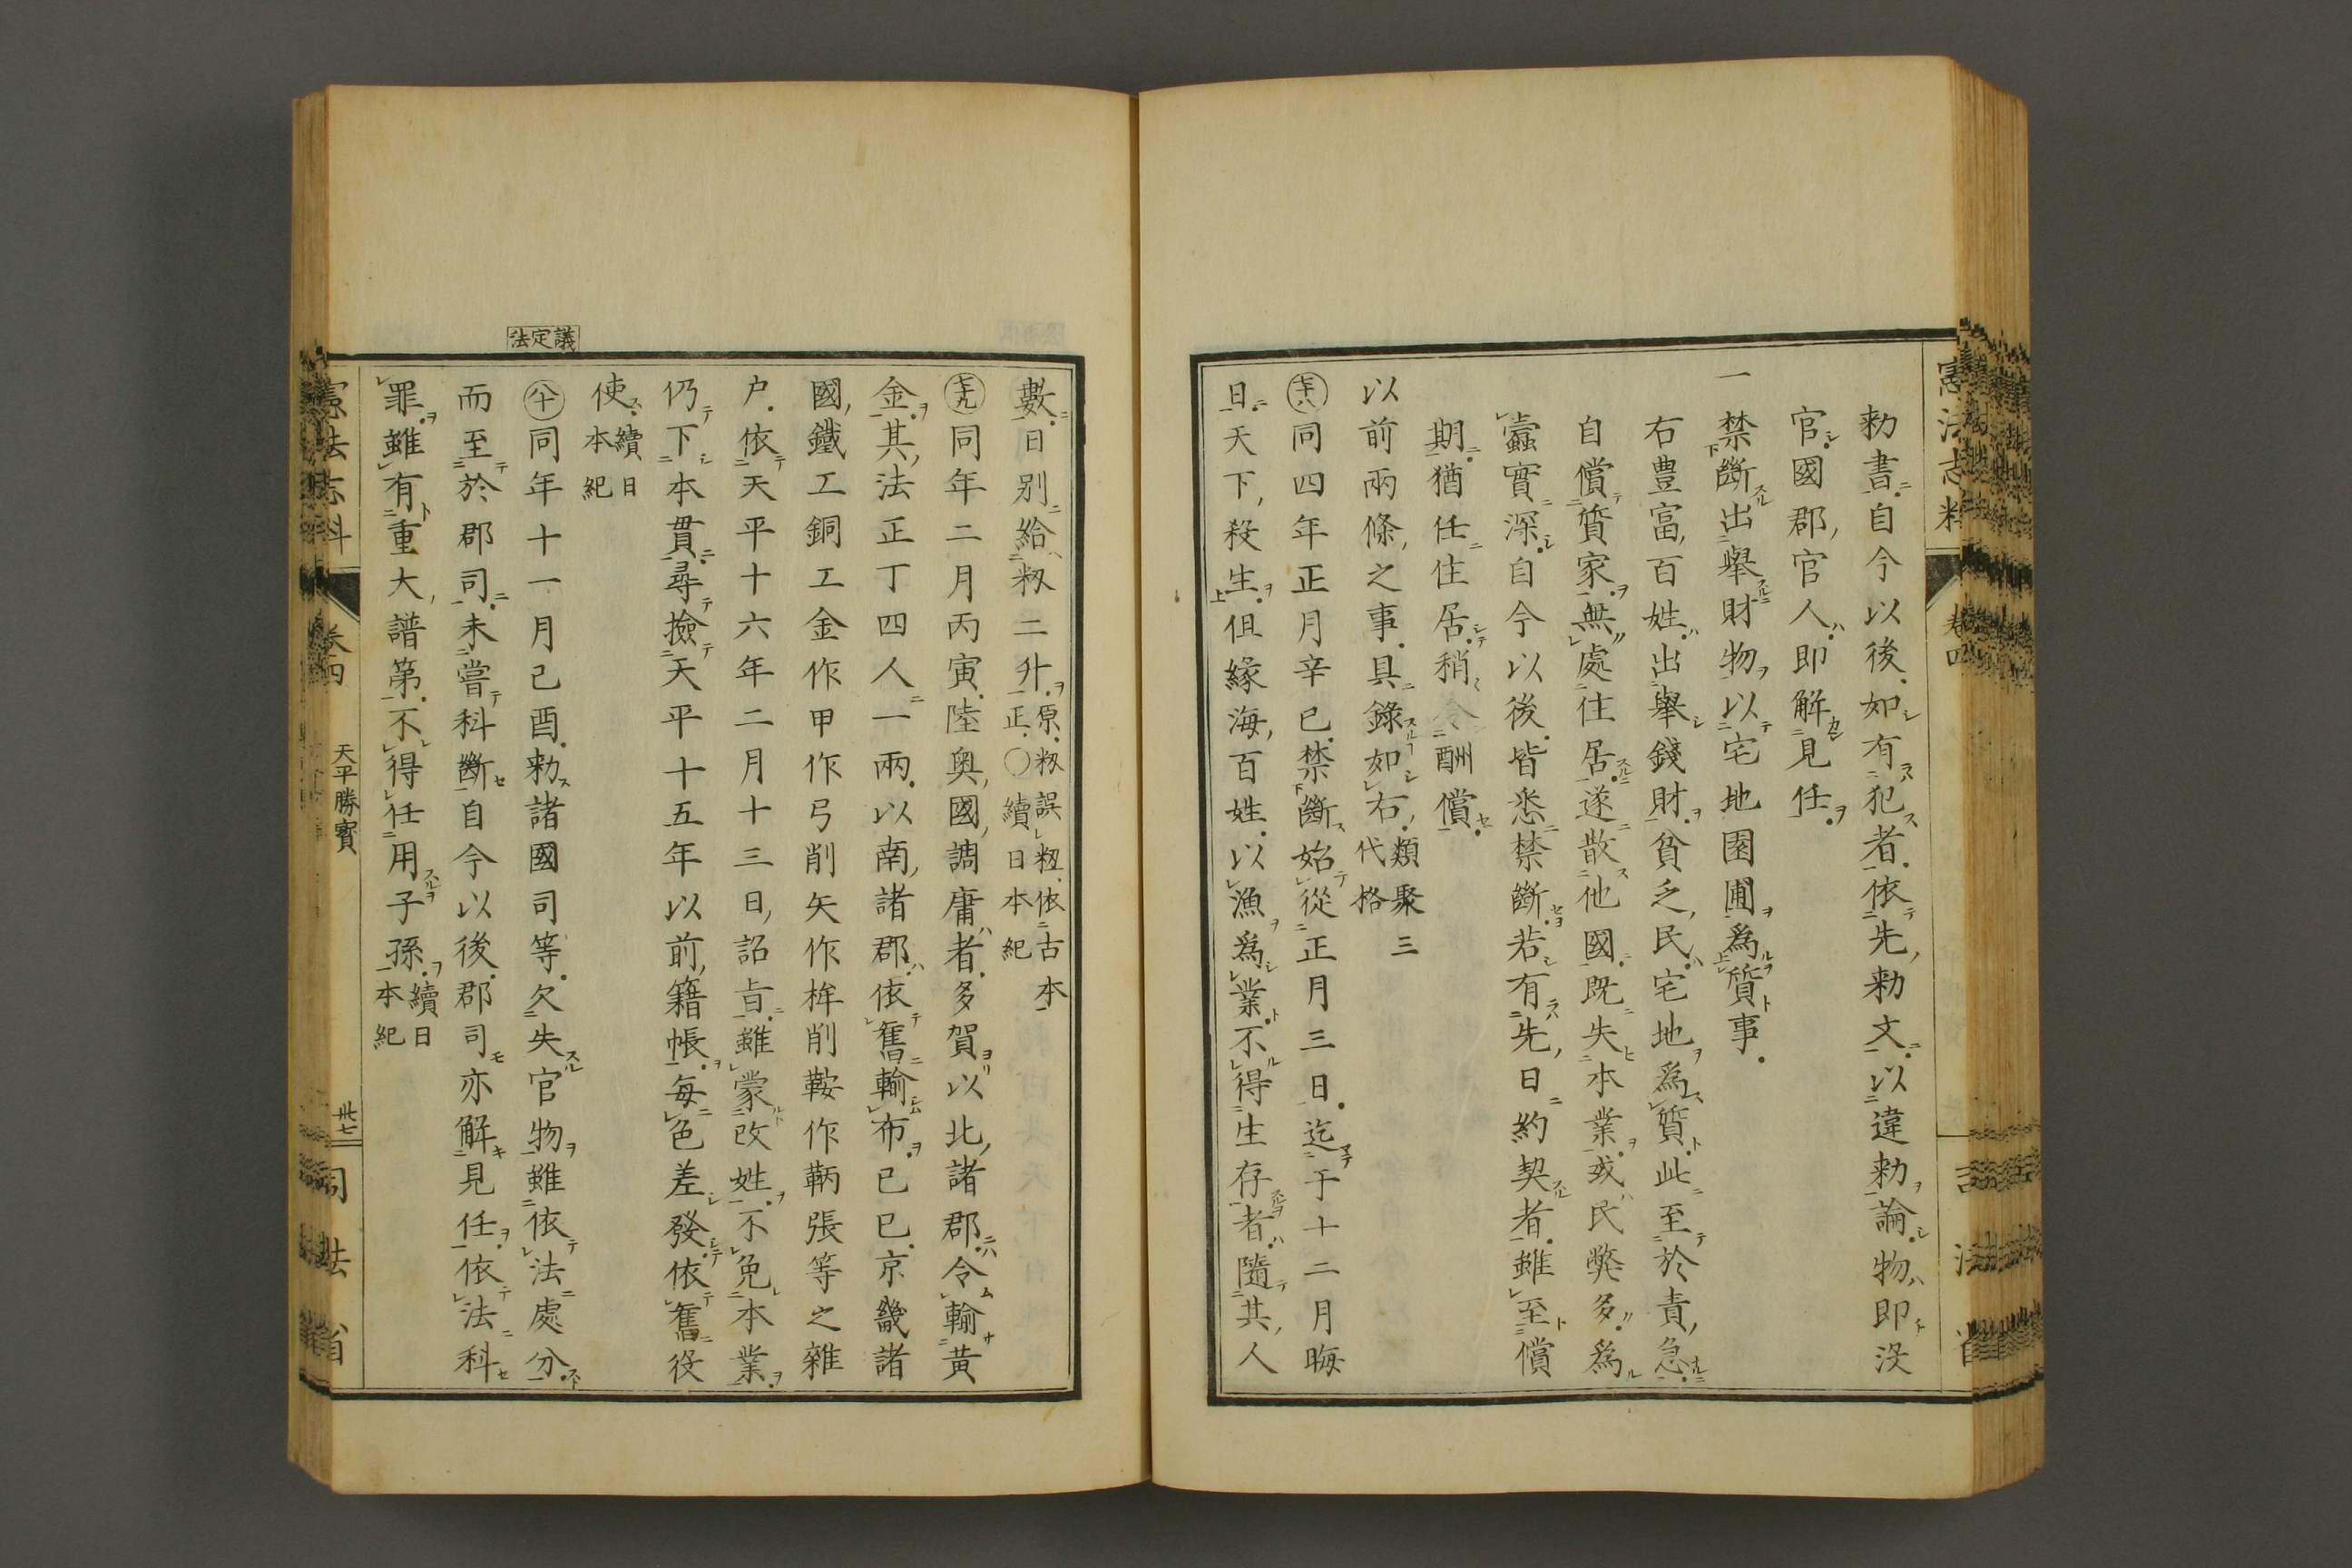 勅書自今以後如有犯者依先勅文以違勅論物即没
官國郡官人即解見任
一禁斷出擧財物以宅地園圃爲質事
右豊富百姓出擧錢財貧乏民宅地爲質此至於責急
自償質家無處住居遂散他國既失本業或民弊多爲
蠹實深自今以後皆悉禁斷若有先日約契者雖至償
期猶任住居稍令酬償
以前兩條之事具錄如右類聚三代格
七十八同四年正月辛巳禁斷始從正月三日迄于十二月晦
日天下殺生但緣海百姓以漁爲業不得生存者隨其人
憲法志料 卷四 司法省
數日别給籾二升原籾誤籾依古本正〇續日本紀
七十九同年二月丙寅陸奥國調庸者多賀以北諸郡令輸黄
金其法正丁四人一兩以南諸郡依舊輸布已巳京畿諸
國鐵工銅工金作甲作弓削矢作桙削鞍作鞆張等之雜
户依天平十六年二月十三日詔旨雖蒙改姓不免本業
仍下本貫尋撿天平十五年以前籍帳每色差發依舊役
使續日本紀
議定法
八十同年十一月己酉勅諸國司等欠失官物雖依法處分
而至於郡司未嘗科斷自今以後郡司亦解見任依法科
罪雖有重大譜第不得任用子孫續日本紀
憲法志料 卷四 天平勝寳 卅七 司法省